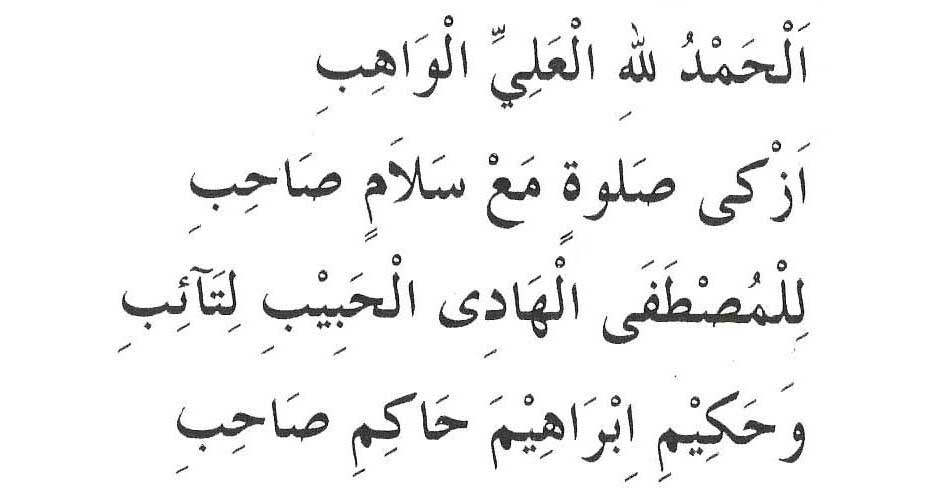 اَلْحَمْدُ لِلّٰهِ الْعَلِيِّ الْوَاهِبِ
اَزْكى صَلوةٍ مَعْ سَلَامٍ صَاحِبِ
لِلْمُصْطَفَى الْهَادِى الْحَبِيْبِ لِتَآئِبِ
وَحَكِيْمِ اِبْرَاهِيْمَ حَاكِمِ صَاحِبِ